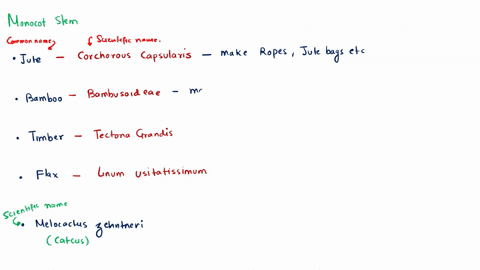 Monocot Stem
Common name Scientific name.
• Jute — Corchorous Capsularis — make Ropes, Jute bags etc
• Bamboo — Bambusoideae — mo
• Timber — Tectona Grandis
• Flax — Linum usitatissimum
Scientific name
• Melocactus zehntneri
(Catcus)